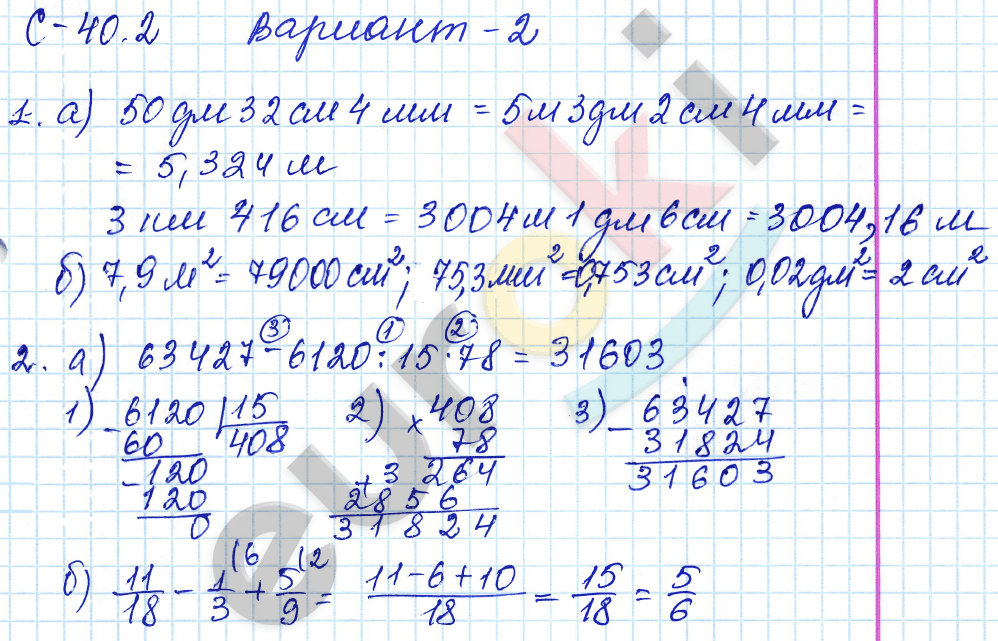 С-40.2 Вариант-2
1. а) 50 дм 32 см 4 мм = 5м 3дм 2 см 4 мм =
= 5,324 м
3 км 416 см = 3004 м 1 дм 6 см = 3004,16 м
б) 7,9 м² = 79000 см²; 75,3 мм² = 0,753 см²; 0,02 дм² = 2 см²
③ ① ②
2. а) 63427 - 6120 : 15 · 78 = 31603
1) - 6120 | 15 2) × 408 3) - 63427
60 408 78 31824
- 120 + 3 264 31603
120 2856
0 31824
(6 (2
б) 11/18 - 1/3 + 5/9 = (11-6+10)/18 = 15/18 = 5/6
euroki